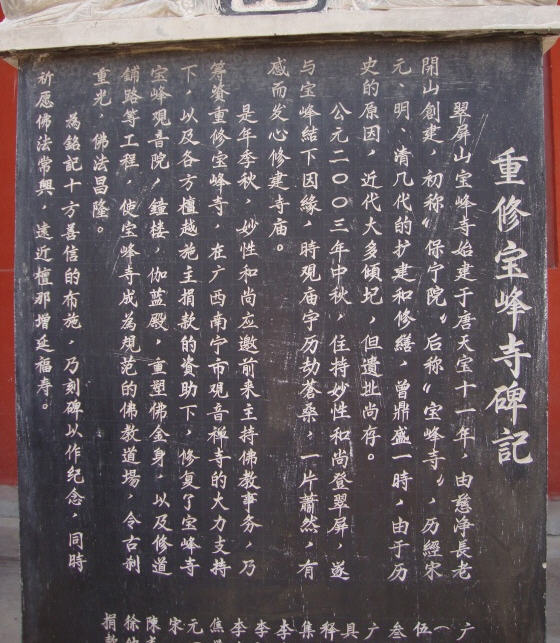 重修宝峰寺碑記
翠屏山宝峰寺始建于唐天宝十一年，由慈净長老
開山創建，初称“保宁院”，后称“宝峰寺”，历經宋
元、明、清几代的扩建和修繕，曾鼎盛一時，由于历
史的原因，近代大多傾圮，但遺址尚存。
公元二〇〇三年中秋，住持妙性和尚登翠屏，遂
与宝峰結下因緣，時观庙宇历劫蒼桑，一片蕭然，有
感而发心修建寺庙。
是年季秋，妙性和尚应邀前来主持佛教事务，乃
筹資重修宝峰寺，在广西南宁市观音禅寺的大力支持
下，以及各方檀越施主捐款的資助下，修复了宝峰寺
宝峰观音院，鐘楼、伽蓝殿，重塑佛金身，以及修道
鋪路等工程，使宝峰寺成為規范的佛教道場，令古刹
重光，佛法昌隆。
為銘記十方善信的布施，乃刻碑以作纪念，同時
祈愿佛法常興，遠近檀那增延福寿。
广
一
伍
叁
广
具
释
集
李
李
李
焦
元
宋
陳
徐
捐款